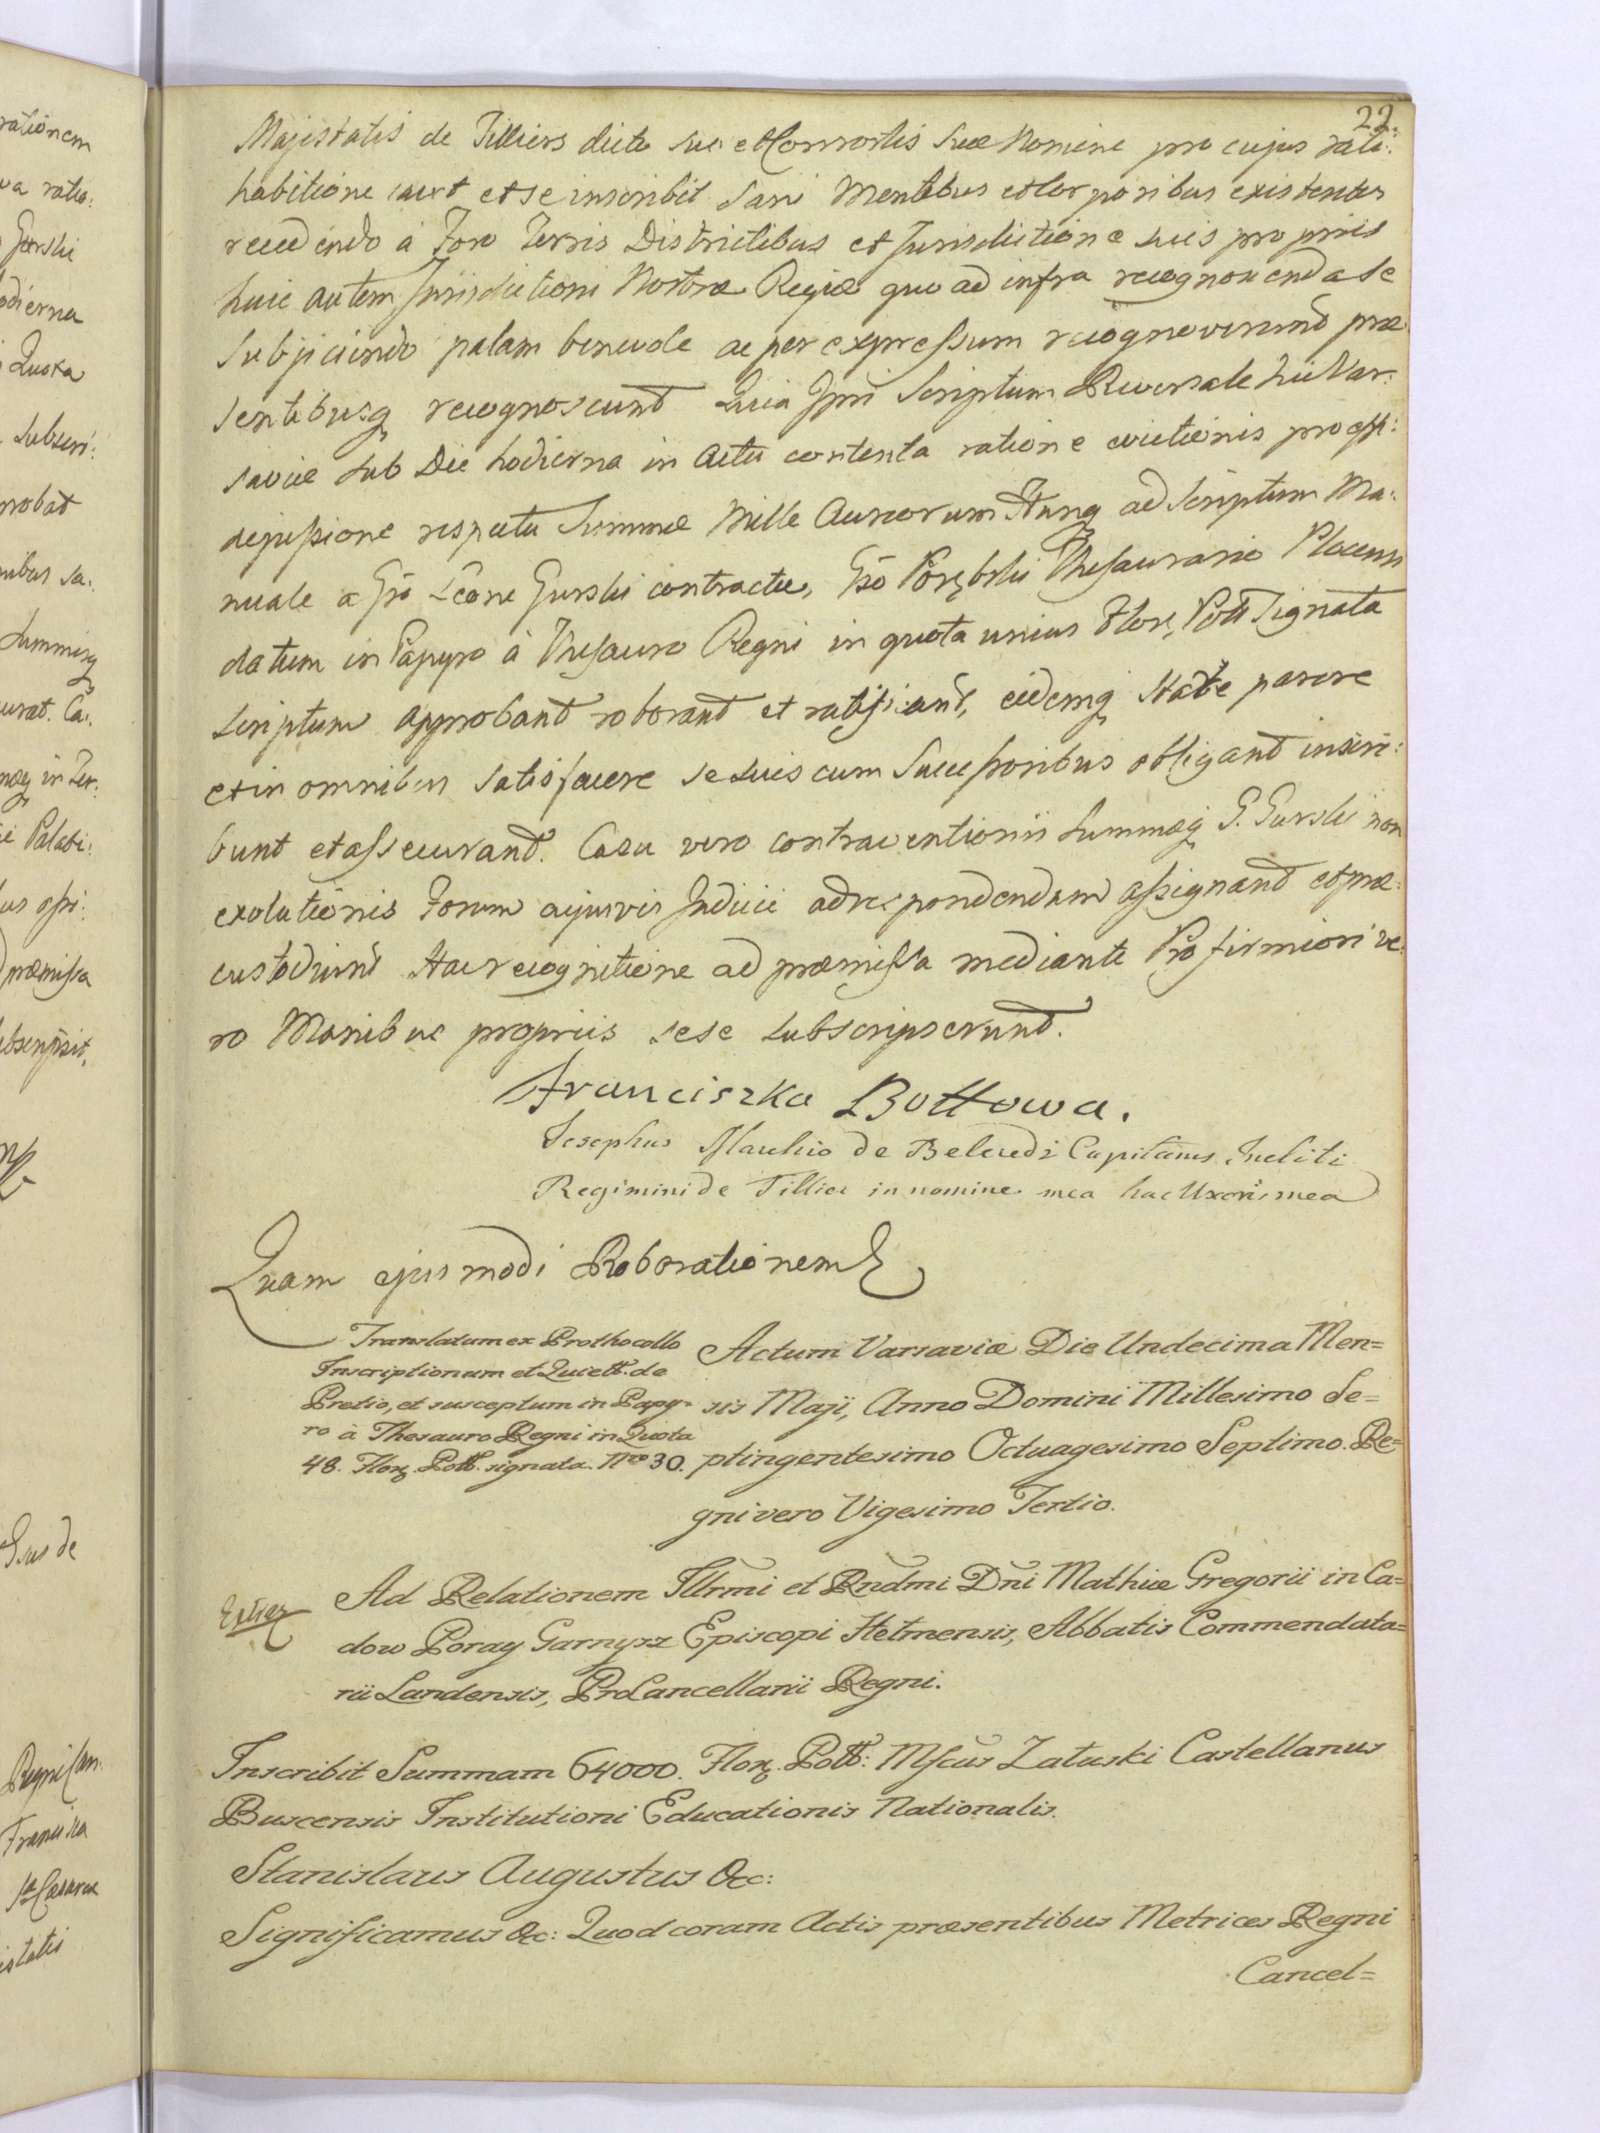 22.
Majestatis de Tilliers dicto suo et Consortis suæ Nomine pro cujus rati:
habitione cavet et se inscribit sani Mentibus et Corporibus existentes
recedendo á Foro Terris Districtibus et Jurisdictione suis propriis
huic autem Jurisdictioni Nostræ Regiæ quo ad infra recognoscenda se
subjiciendo palam benevole ac per expressum recognoverunt præ
sentibusq recognoscunt Quia Ipsi Scriptum Reversale hic Var:
saviæ sub Die hodierna in Actu contenta ratione evictionis pro
dejussione respectu Summæ Mille Aureorum Hung ad Scriptum Ma:
nuale a Gso Leone Gurski contractæ, Gso Porębski Thesaurario Plocensi
datum in Papyro à Thesauro Regni in quota unius Flor, Poll signata
scriptum approbant roborant et ratificant, eidemq State parere
et in omnibus satisfacere se suis cum Successoribus obligant inscri:
bunt et assecurant. Casu vero contraventionis Summæq G. Gurski non
exolutionis Forum cujusvis Judicii ad respondendum assignant et præ:
custodiunt Hac recognitione ad præmissa mediante Pro firmiori ve:
ro Manibus propriis sese subscripserunt.
Franciszka Bottowa.
Josephus Marchio de Belcredi Capitanus Incliti
Regimini de Tillier in nomine mea hac Uxoris mea
Quam ejusmodi Roborationem
Translatum ex Prothocollo
Inscriptionum et Quiett. de
Pretio, et susceptum in Papy=
ro à Thesauro Regni in Quota
48. Flor. Poll. signata. Nro 30.
Actum Varsaviæ Die Undecima Men=
sis Maji, Anno Domini Millesimo Se=
ptingentesimo Octuagesimo Septimo. Re=
gni vero Vigesimo Tertio.
Ad Relationem Illrmi et Rndmi Dni Mathiæ Gregorii in Ca=
dow Poray Garnysz Episcopi Hełmensis, Abbatis Commendata=
rii Landensis, ProCancellarii Regni.
Inscribit Summam 64000. Flor. Poll: Mfcus Załuski Castellanus
Buscensis Institutioni Educationis Nationalis.
Stanislaus Augustus &c:
Significamus &c: Quod coram Actis præsentibus Metrices Regni
Cancel=